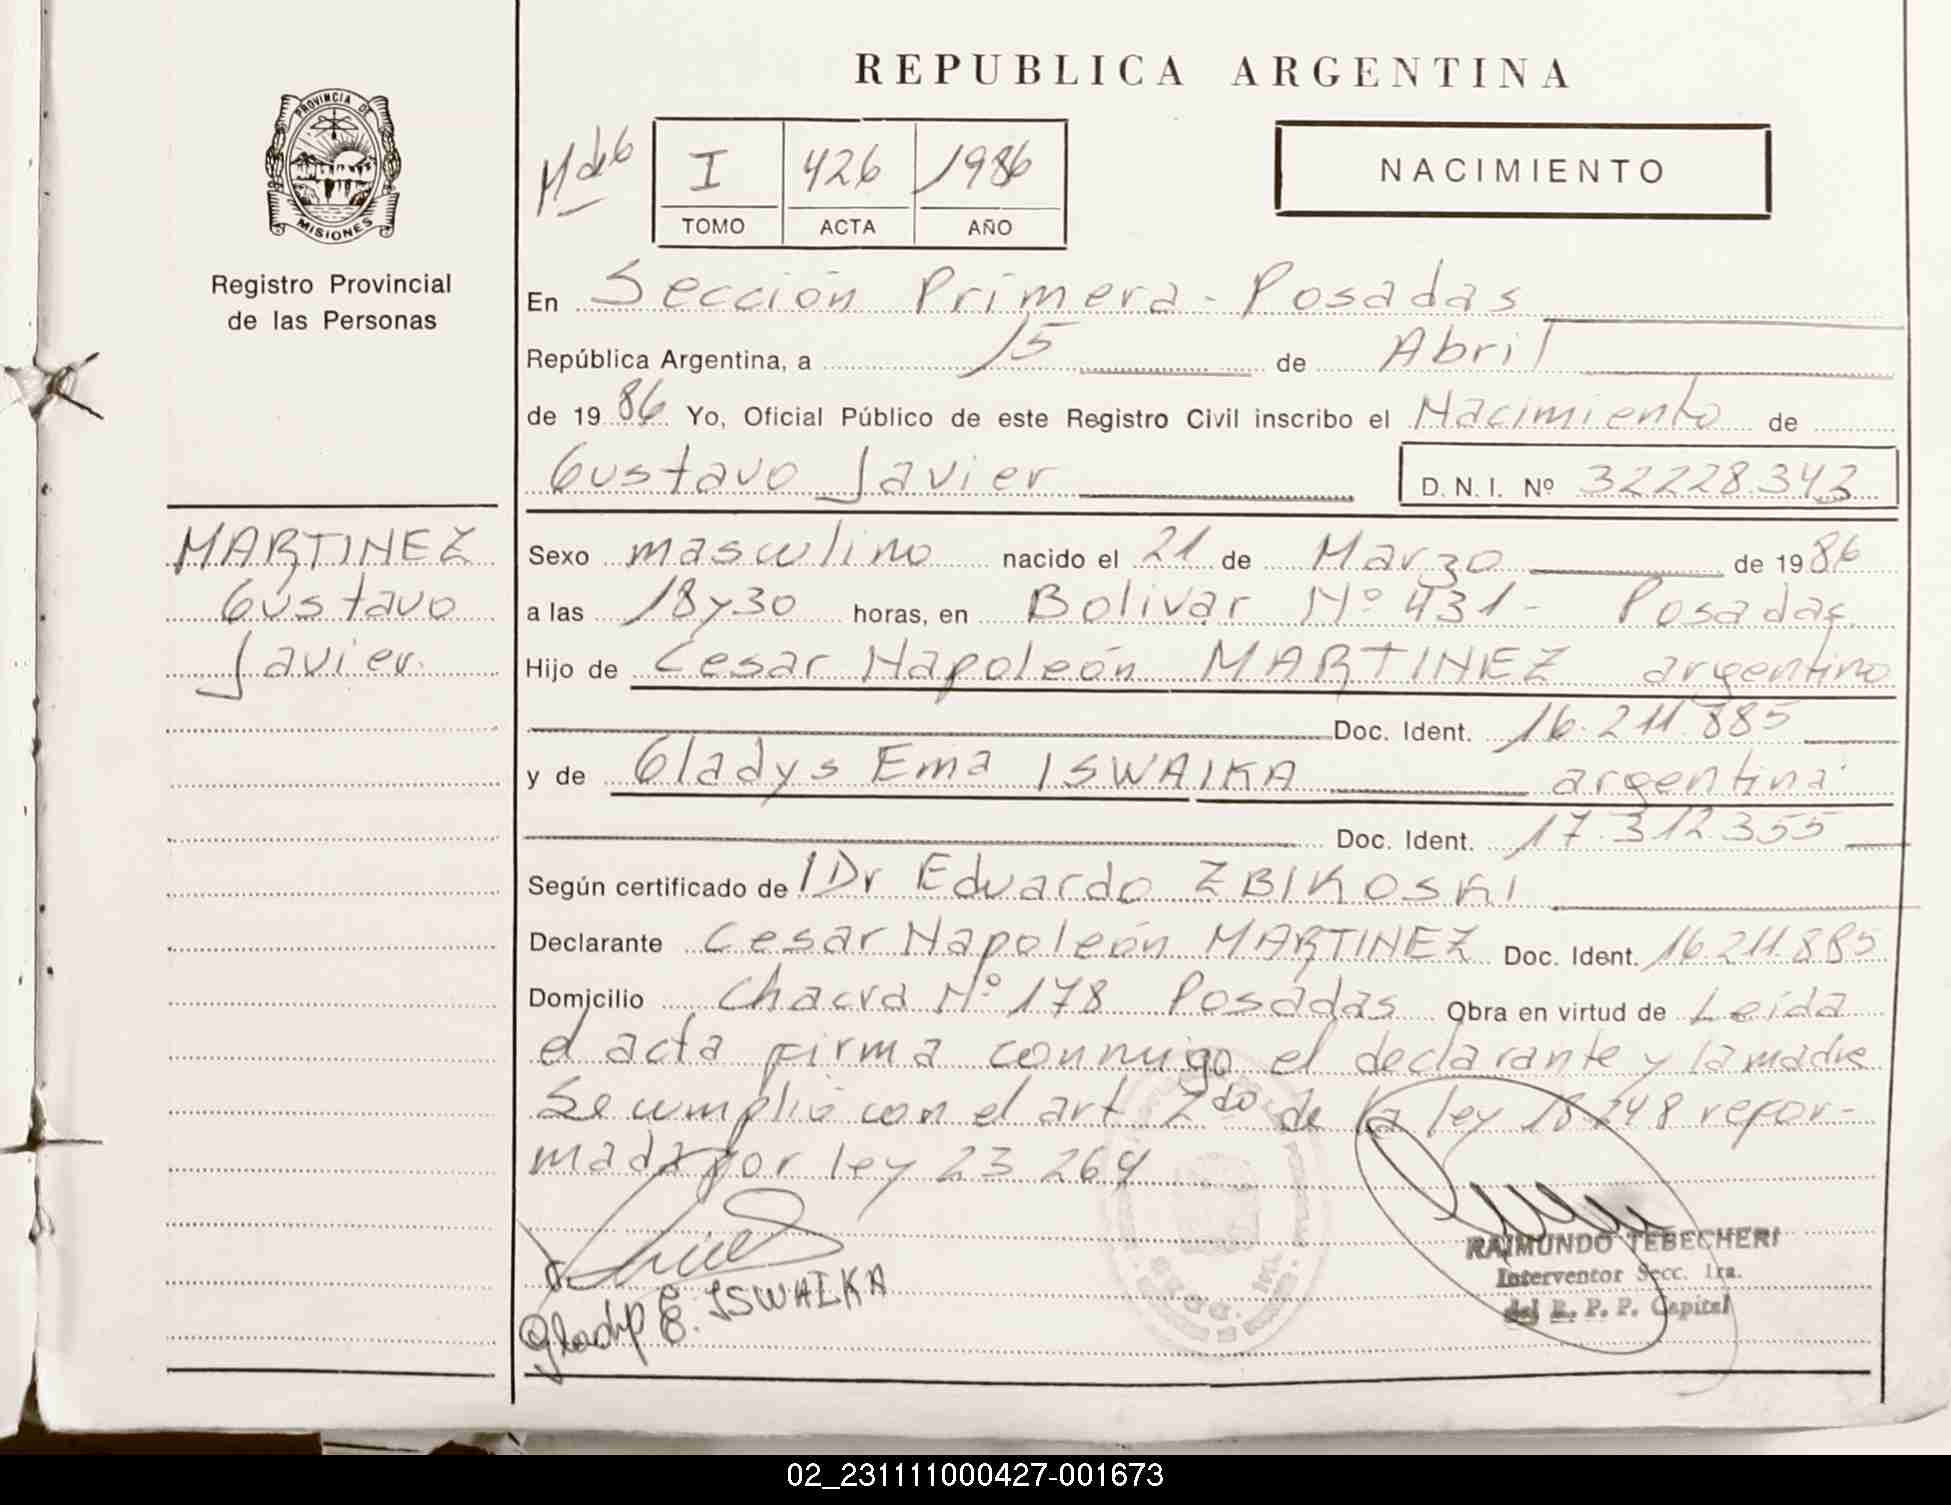 REPUBLICA ARGENTINA
PROVINCIA DE
MISIONES
Registro Provincial
de las Personas
I 426 1986
TOMO ACTA AÑO
NACIMIENTO
En Sección Primera - Posadas
República Argentina, a 15 de Abril
de 19 86 Yo, Oficial Público de este Registro Civil inscribo el Nacimiento de
Gustavo Javier D.N.I. Nº 32228.343
MARTINEZ
Gustavo
Javier.
Sexo masculino nacido el 21 de Marzo de 19 86
a las 18 y 30 horas, en Bolivar Nº 431 - Posadas.
Hijo de Cesar Napoleón MARTINEZ argentino
Doc. Ident. 16.211.885
y de Gladys Ema ISWAIKA argentina
Doc. Ident. 17.312.355
Según certificado de Dr Eduardo ZBIKOSKI
Declarante Cesar Napoleón MARTINEZ Doc. Ident. 16.211.885
Domicilio Chacra Nº 178 Posadas Obra en virtud de Leída
el acta firma conmigo el declarante y la madre
Se cumplió con el art 2do de la ley 18.248 refor-
mada por ley 23 264
Gladys E. ISWAIKA
RAIMUNDO TEBECHERI
Interventor Secc. 1ra.
del R. P. P. Capital
02_231111000427-001673